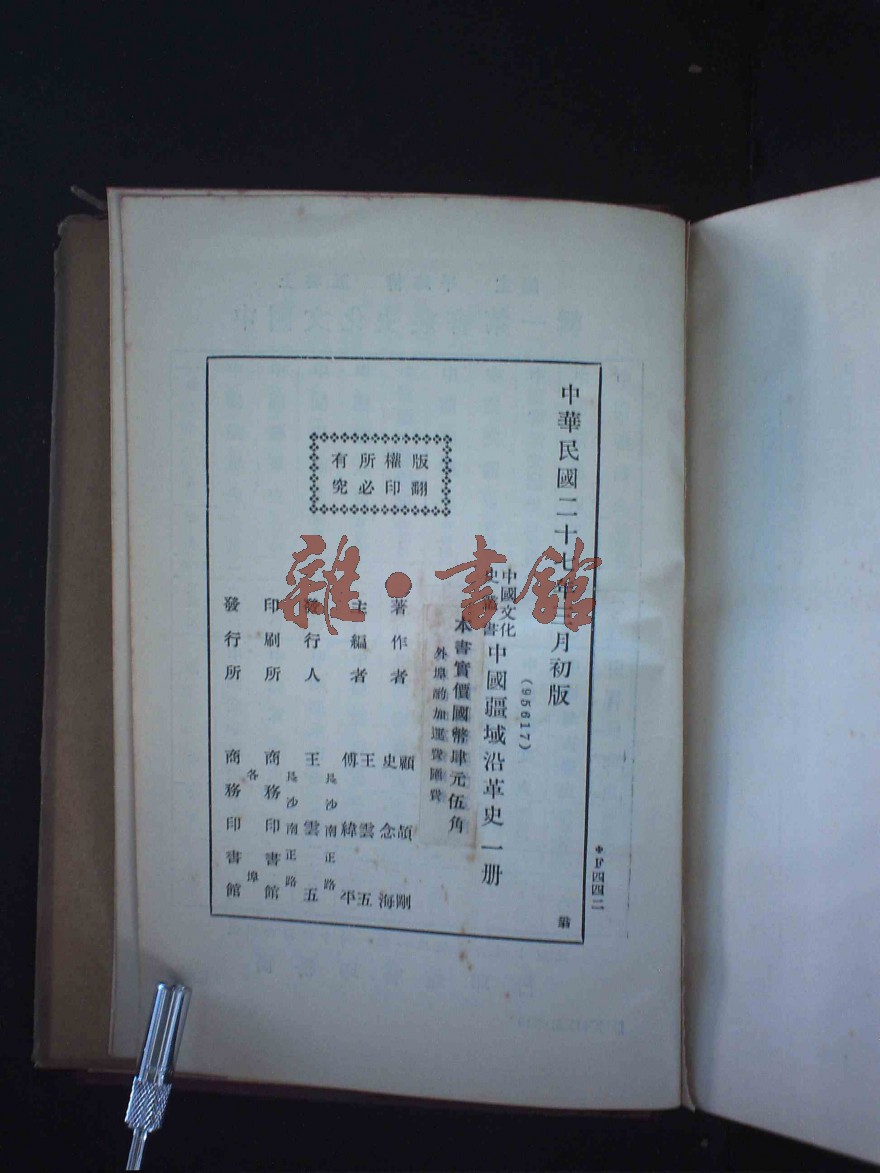 中華民國二十七年三月初版
(95617)
中國文化
史叢書
中國疆域沿革史一册
本書實價國幣肆元伍角
外埠酌加運費匯費
版權所有
翻印必究
著作者
顧頡剛
史念海
主編者
王雲五
傅緯平
發行人
長沙南正路
王雲五
印刷所
長沙南正路
商務印書館
發行所
各埠
商務印書館
雜·書館